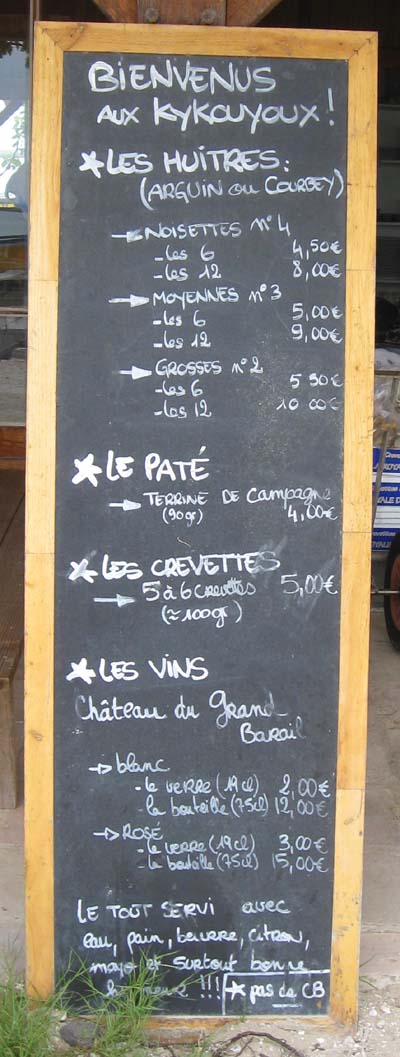 BIENVENUS
AUX KYKOUYOUX!
★LES HUITRES:
(ARGUIN OU COURBEY)
→NOISETTES n°4
-les 6 4,50€
-les 12 8,00€
→MOYENNES n°3
-les 6 5,00€
-les 12 9,00€
→GROSSES n°2
-les 6 5 50€
-les 12 10 00€
★LE PATÉ
→TERRINE DE Campagne
(90gr) 4,00€
★LES CREVETTES
→5 à 6 crevettes 5,00€
(≈100gr)
★LES VINS
Château du Grand
Barail
→blanc
-le verre (19cl) 2,00€
-la bouteille (75cl) 12,00€
→ROSÉ
-le verre (19cl) 3,00€
-la bouteille (75cl) 15,00€
LE TOUT SERVI avec
eau, pain, beurre, citron,
mayo et SURTOUT bonne
humeur !!! ★ pas de CB